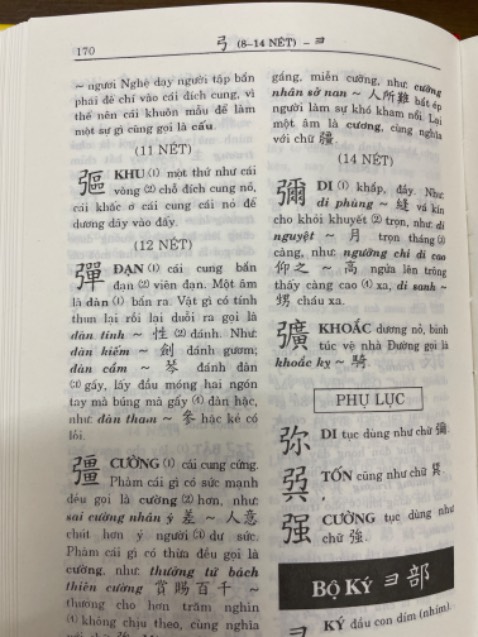 170
弓 (8–14 NÉT) – ヨ
~ ngươi Nghệ dạy người tập bắn
phải để chí vào cái đích cung, vì
thế nên cái khuôn mẫu để làm
một sự gì cũng gọi là cấu.
(11 NÉT)
彄 KHU (1) một thứ như cái
vòng (2) chỗ đích cung nỏ,
cái khấc ở cái cung cái nỏ để
dương dây vào đấy.
(12 NÉT)
彈 ĐẠN (1) cái cung bắn
đạn (2) viên đạn. Một âm
là đàn (1) bắn ra. Vật gì có tính
thun lại rồi lại duỗi ra gọi là
đàn tính ~ 性 (2) đánh. Như:
đàn kiếm ~ 劍 đánh gươm;
đàn cầm ~ 琴 đánh đàn
(3) gảy, lấy đầu móng hai ngón
tay mà búng mà gẩy (4) đàn hặc,
như: đàn tham ~ 參 hặc kẻ có
lỗi.
彊 CƯỜNG (1) cái cung cứng.
Phàm cái gì có sức mạnh
đều gọi là cường (2) hơn, như:
sai cường nhân ý 差 ~ 人意
chút hơn ý người (3) dư sức.
Phàm cái gì có thừa đều gọi là
cường, như: thưởng tứ bách
thiên cường 賞賜百千 ~
thưởng cho hơn trăm nghìn
(4) không chịu theo, cùng nghĩa
gắng, miễn cưỡng, như: cưỡng
nhân sở nan ~ 人所難 bắt ép
người làm sự khó kham nổi. Lại
một âm là cương, cùng nghĩa
với chữ 疆
(14 NÉT)
彌 DI (1) khắp, đầy. Như:
di phùng ~ 縫 vá kín
cho khỏi khuyết (2) trọn, như: di
nguyệt ~ 月 trọn tháng (3)
càng, như: ngưỡng chi di cao
仰之 ~ 高 ngửa lên trông
thấy càng cao (4) xa, di sanh ~
甥 cháu xa.
彍 KHOẮC dương nỏ, bình
túc vệ nhà Đường gọi là
khoắc kỵ ~ 騎
PHỤ LỤC
弥 DI tục dùng như chữ 彌.
TỐN cũng như chữ 巽
强 CƯỜNG tục dùng như
chữ 強.
BỘ KÝ ヨ部
KÝ đầu con dím (nhím).